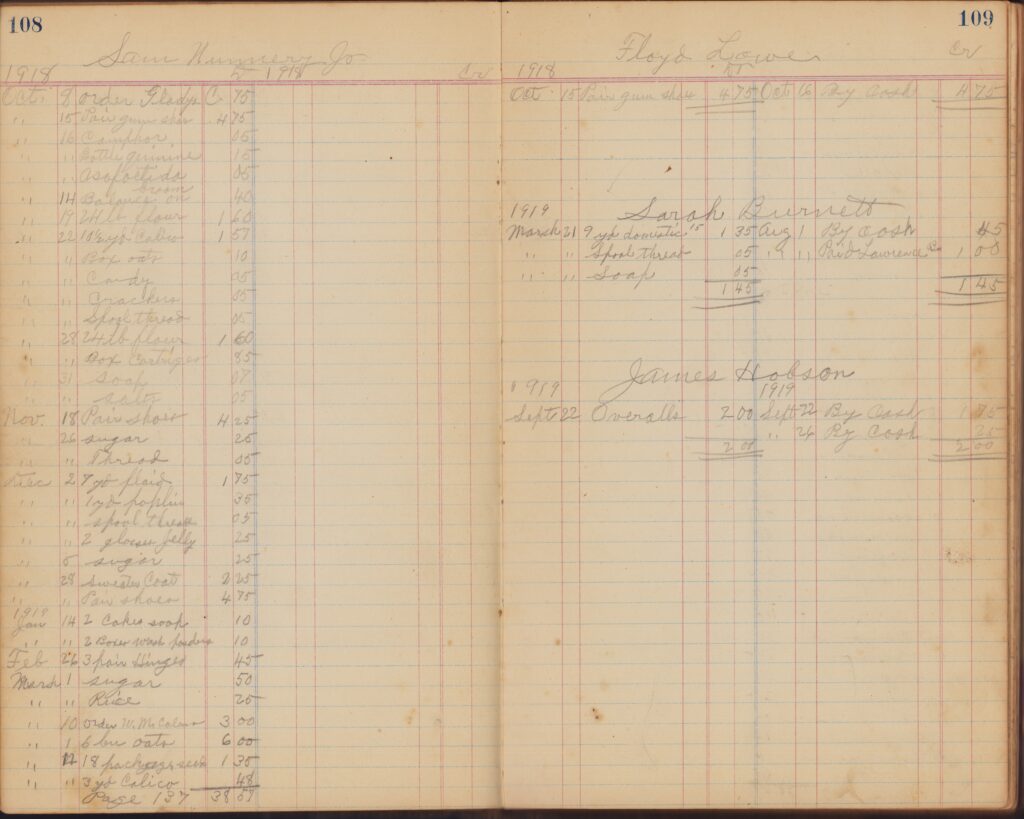 108
Sam Nunnery Jr
1918 Dr 1918 Cr
Oct. 8 order Gladys C. 75
" 15 Pair gum shoes 4 75
" 16 Camphor 05
" " Bottle quinine 15
" " Asafoetida 05
" 14 Balance on broom 40
" 19 24 lb flour 1 60
" 22 10½ yd Calico 1 57
" " Box oats 10
" " Candy 05
" " Crackers 05
" " Spool thread 05
" 28 24 lb flour 1 60
" " Box Cartriges 85
" 31 Soap 07
" " Salts 05
Nov. 18 Pair shoes 4 25
" 26 sugar 25
" " Thread 05
Dec 2 7 yd plaid 1 75
" " 1 yd poplin 35
" " spool thread 05
" " 2 glasses jelly 25
" 5 sugar 25
" 28 Sweater Coat 2 25
" " Pair shoes 4 75
1919
Jan 14 2 Cakes soap 10
" " 2 Boxes wash powders 10
Feb 26 3 pair Hinges 45
March 1 sugar 50
" " Rice 25
" 10 order W. McCoy 3 00
" 1 6 bu oats 6 00
" 12 18 packages seed 1 35
" " 3 yd Calico 48
Page 137 38 57
109
Floyd Lowe
1918 Dr Cr
Oct 15 Pair gum shoes 4 75 Oct 16 By Cash 4 75
1919 Sarah Burnett
March 21 9 yd domestic 15 1 35 Aug 1 By Cash 45
" " Spool thread 05 " " Paid Lawrence Co 1 00
" " Soap 05
1 45 1 45
James Hobson
1919 1919
Sept 22 Overalls 2 00 Sept 22 By Cash 1 75
" 26 By Cash 25
2 00 2 00